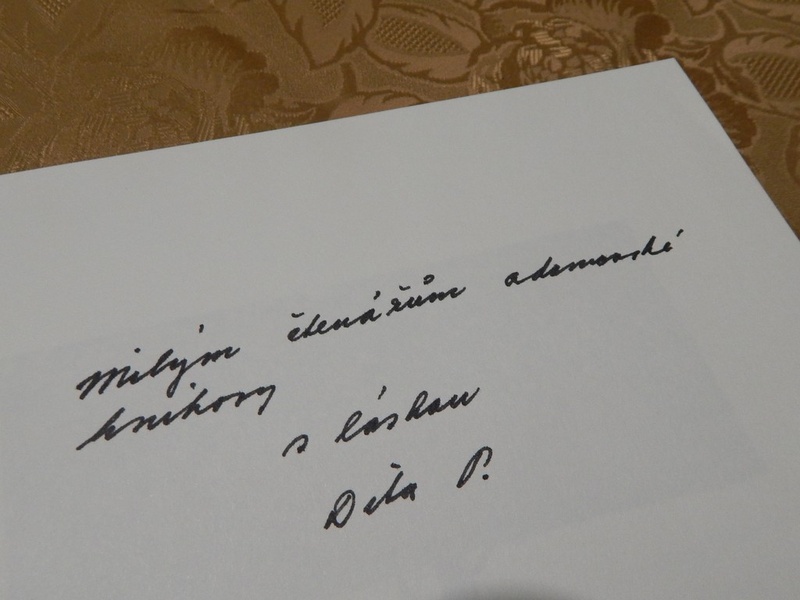 Milým čtenářům adamovské
knihovny
s láskou
Dita P.